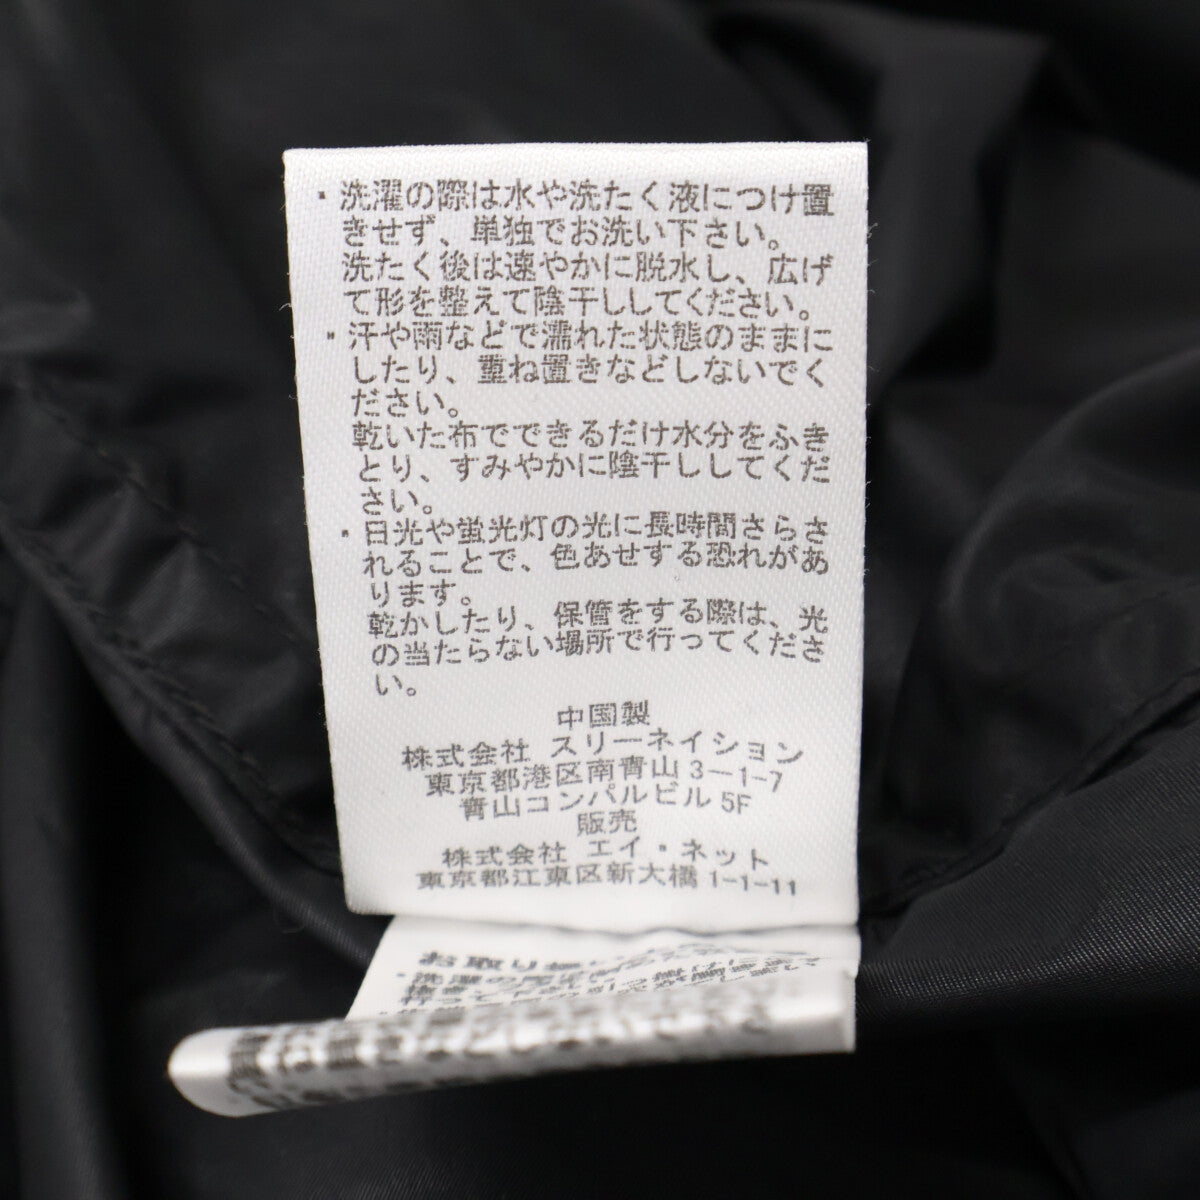 ・洗濯の際は水や洗たく液につけ置
きせず、単独でお洗い下さい。
洗たく後は速やかに脱水し、広げ
て形を整えて陰干ししてください。
・汗や雨などで濡れた状態のままに
したり、重ね置きなどしないでく
ださい。
乾いた布でできるだけ水分をふき
とり、すみやかに陰干ししてくだ
さい。
・日光や蛍光灯の光に長時間さらさ
れることで、色あせする恐れがあ
ります。
乾かしたり、保管をする際は、光
の当たらない場所で行ってくださ
い。
中国製
株式会社 スリーネイション
東京都港区南青山 3－1-7
青山コンパルビル 5F
販売
株式会社 エイ・ネット
東京都江東区新大橋 1-1-11
お取り扱い
・洗濯の